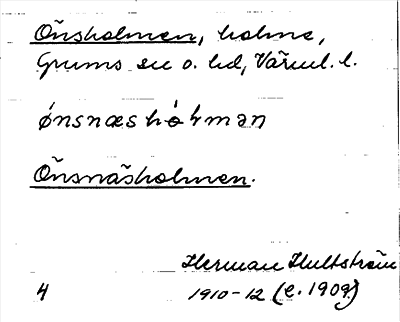 Önsholmen, holme,
Grums sn o. hd, Värml. l.
ónsnæshòɬmən
Önsnäsholmen.
Herman Hultström
4 1910-12 (e. 1909)